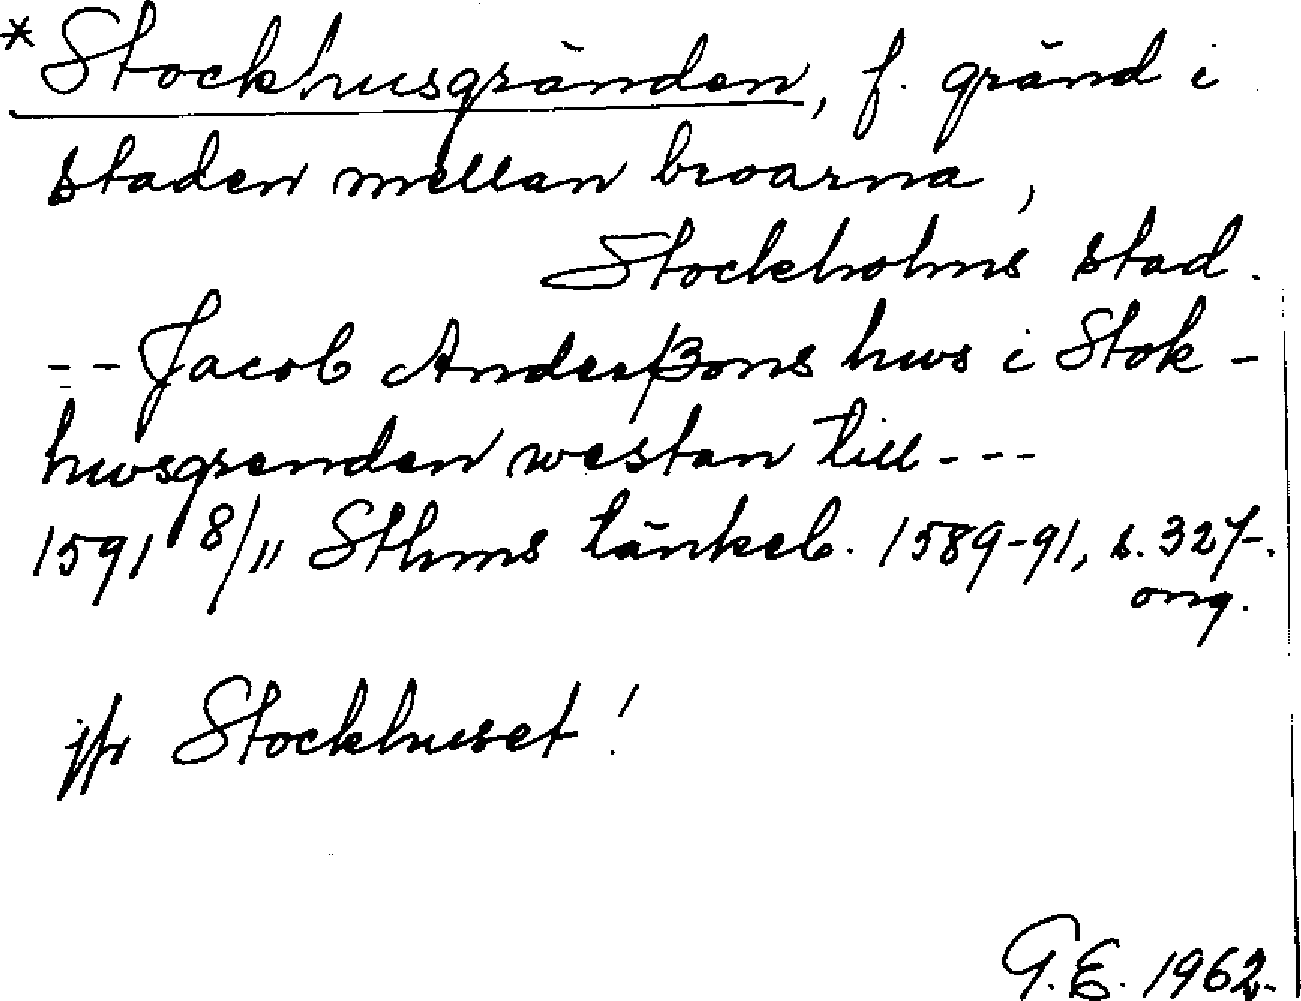 * Stockhusgränden, f. gränd i
staden mellan broarna,
Stockholms stad.
-- Jacob Anderßons hws i Stok-
hwsgrenden westan till ---
1591 8/11 Sthms tänkeb. 1589-91, s. 327.
omg.
jfr Stockhuset!
G.E. 1962.